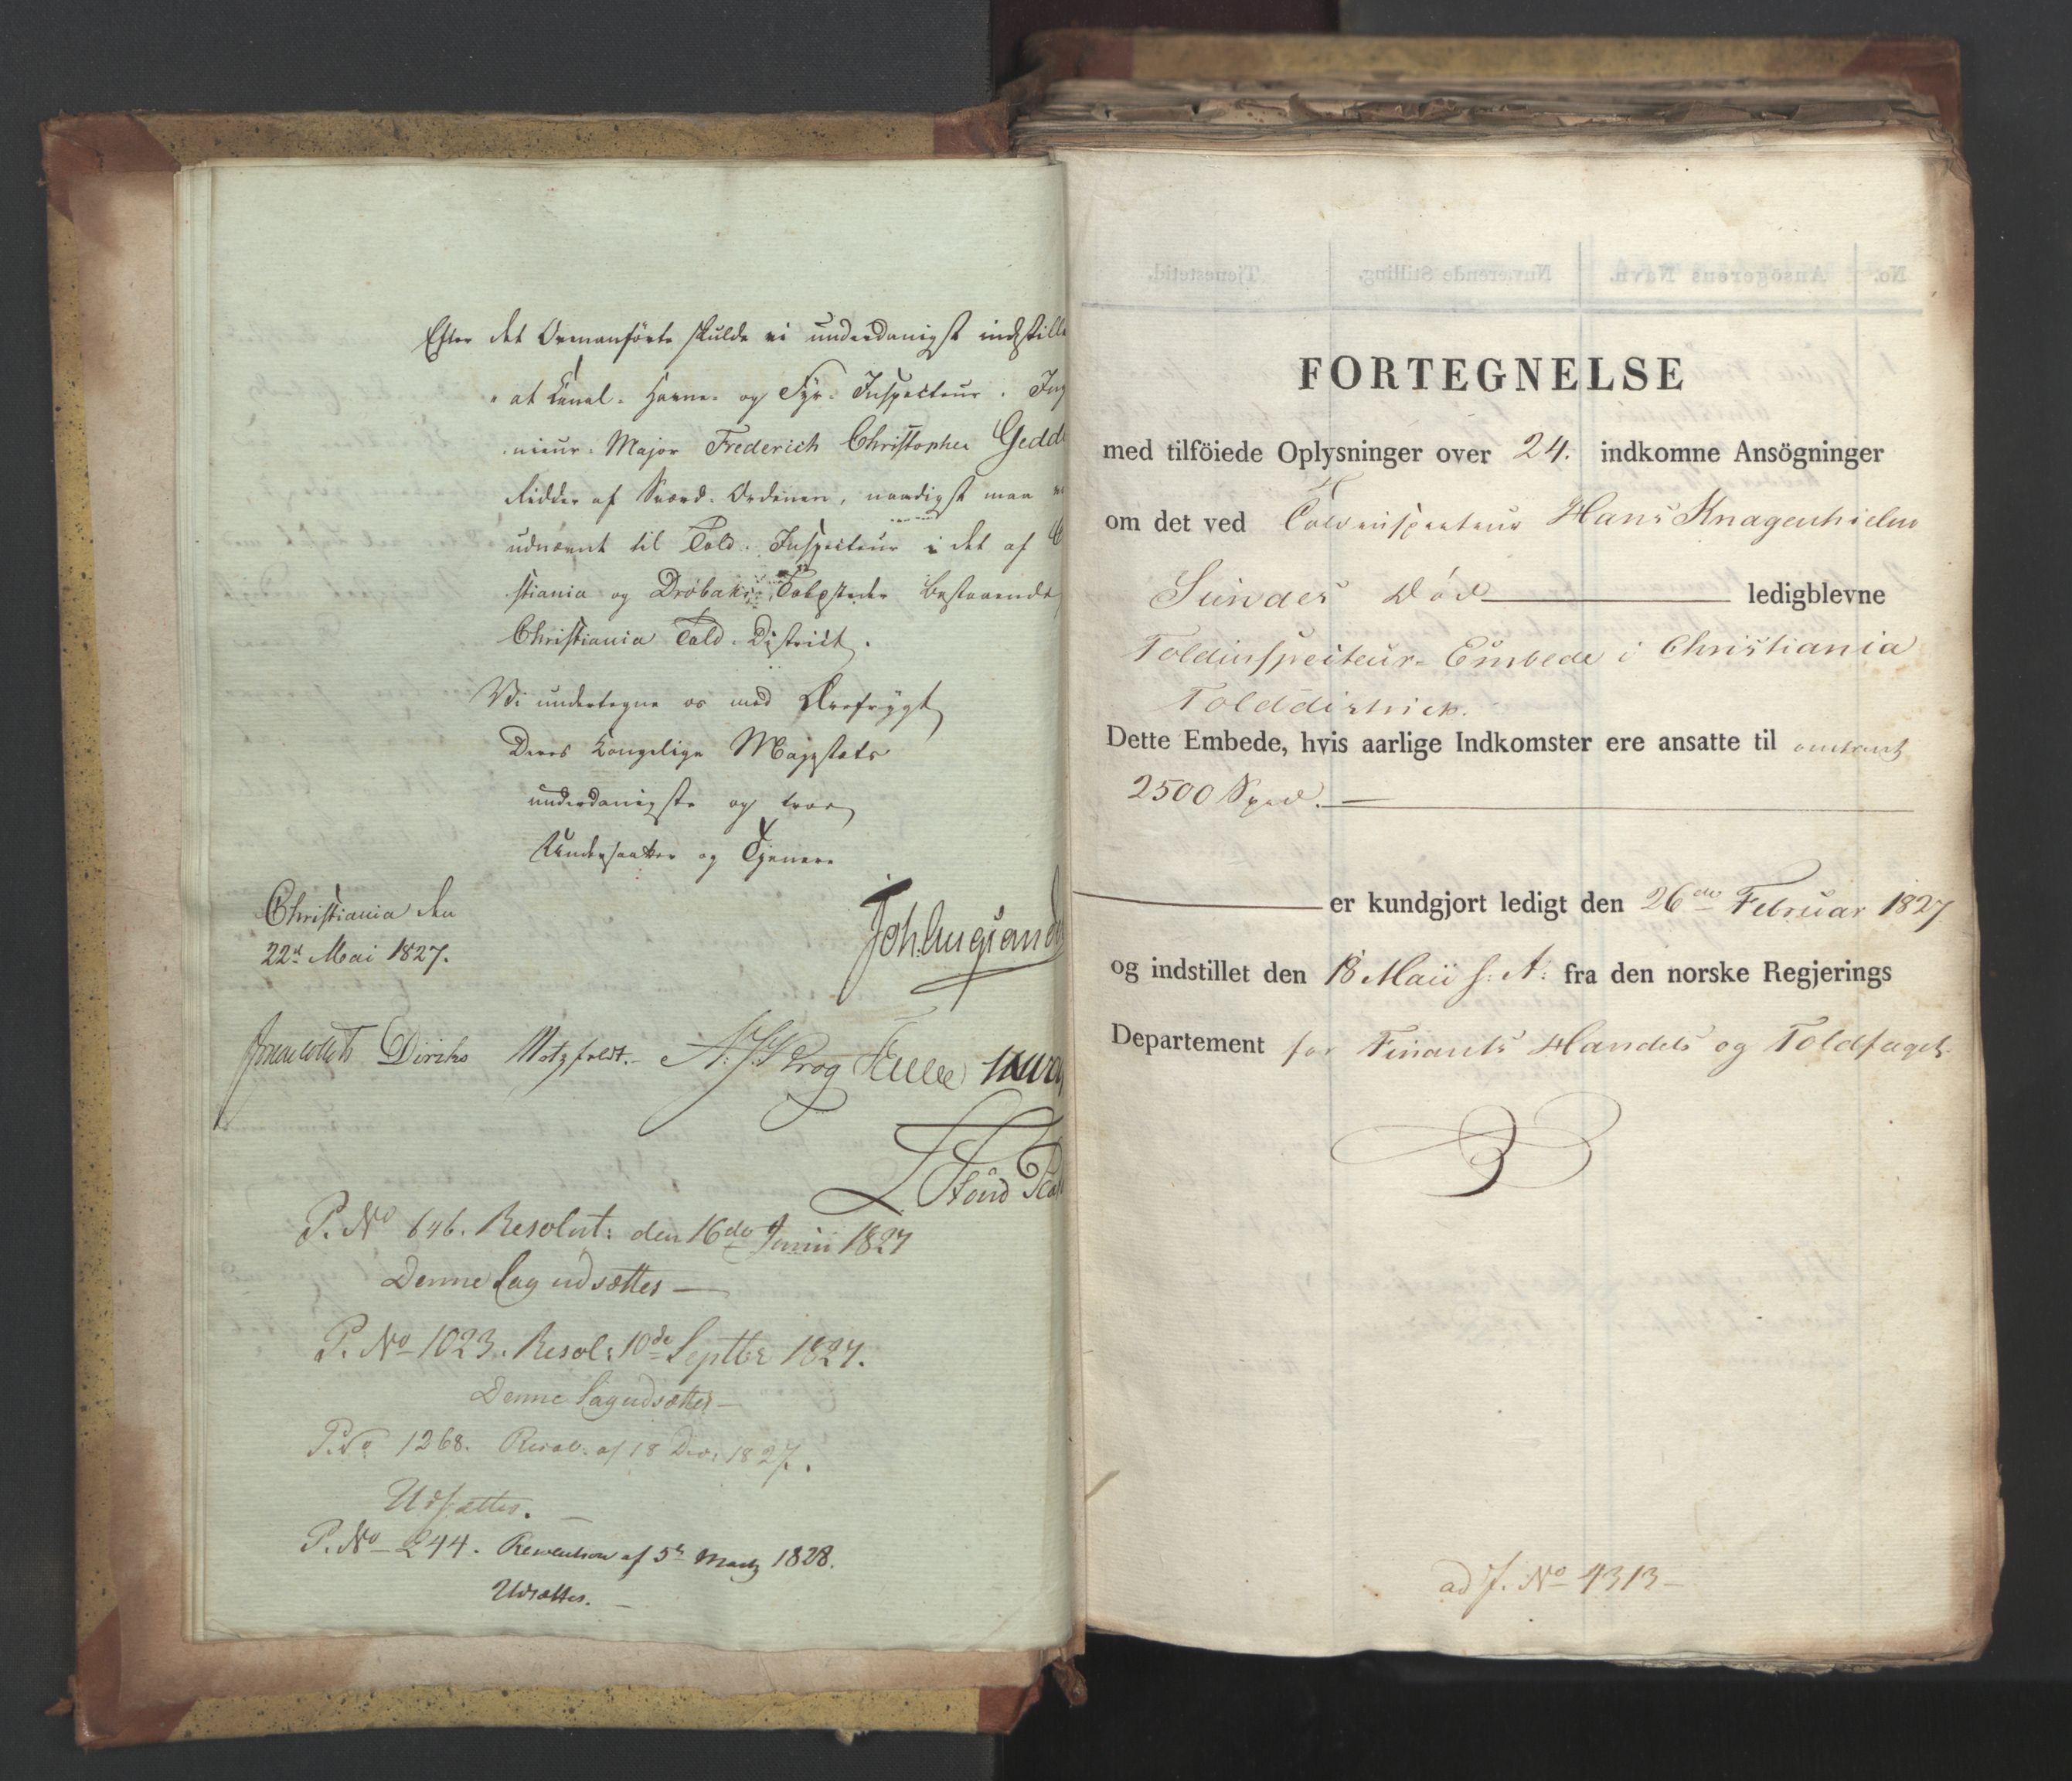 Efter det Ovenanførte skulde vi underdanigst indstille
"at Canal- Havne- og Fyr-Inspecteur, Ing
nieur-Major Frederich Christopher Gedde
Ridder af Sværd-Ordenen, naadigst maa
udnævnt til Told-Inspecteur i det af
stiania og Drøbaks Toldsteder bestaaende
Christiania Told-District.
Vi undertegne os med Ærefrygt
Deres Kongelige Majestæts
underdanigste og troe
Undersaatter og Tjenere
Christiania den
22d Mai 1827.
Joh. Aug Sand
Jonas Collett Diriks Motzfeldt. A. J. Krog
P. No 646. Resolut: den 16de Junii 1827
Denne Sag udsættes —
P. No 1023. Resol: 10de Septbr 1827.
Denne Sag udsættes —
P. No 1268. Resol. af 18 Dec: 1827.
Udsættes. —
P. No 244. Resolution af 5te Martz 1828.
Udsættes. —
No. Ansögerens Navn. Nuværende Stilling. Tjenestetid.
FORTEGNELSE
med tilföiede Oplysninger over 24. indkomne Ansögninger
om det ved Toldinspecteur Hans Knagenhielm
Sundes Død ledigblevne
Toldinspecteur-Embede i Christiania
Tolddistrict.
Dette Embede, hvis aarlige Indkomster ere ansatte til omtrent
2500 Spd. —
er kundgjort ledigt den 26de Februar 1827
og indstillet den 18 Maii s: A: fra den norske Regjerings
Departement for Finants Handels og Toldfaget.
ad J. No 4313 —